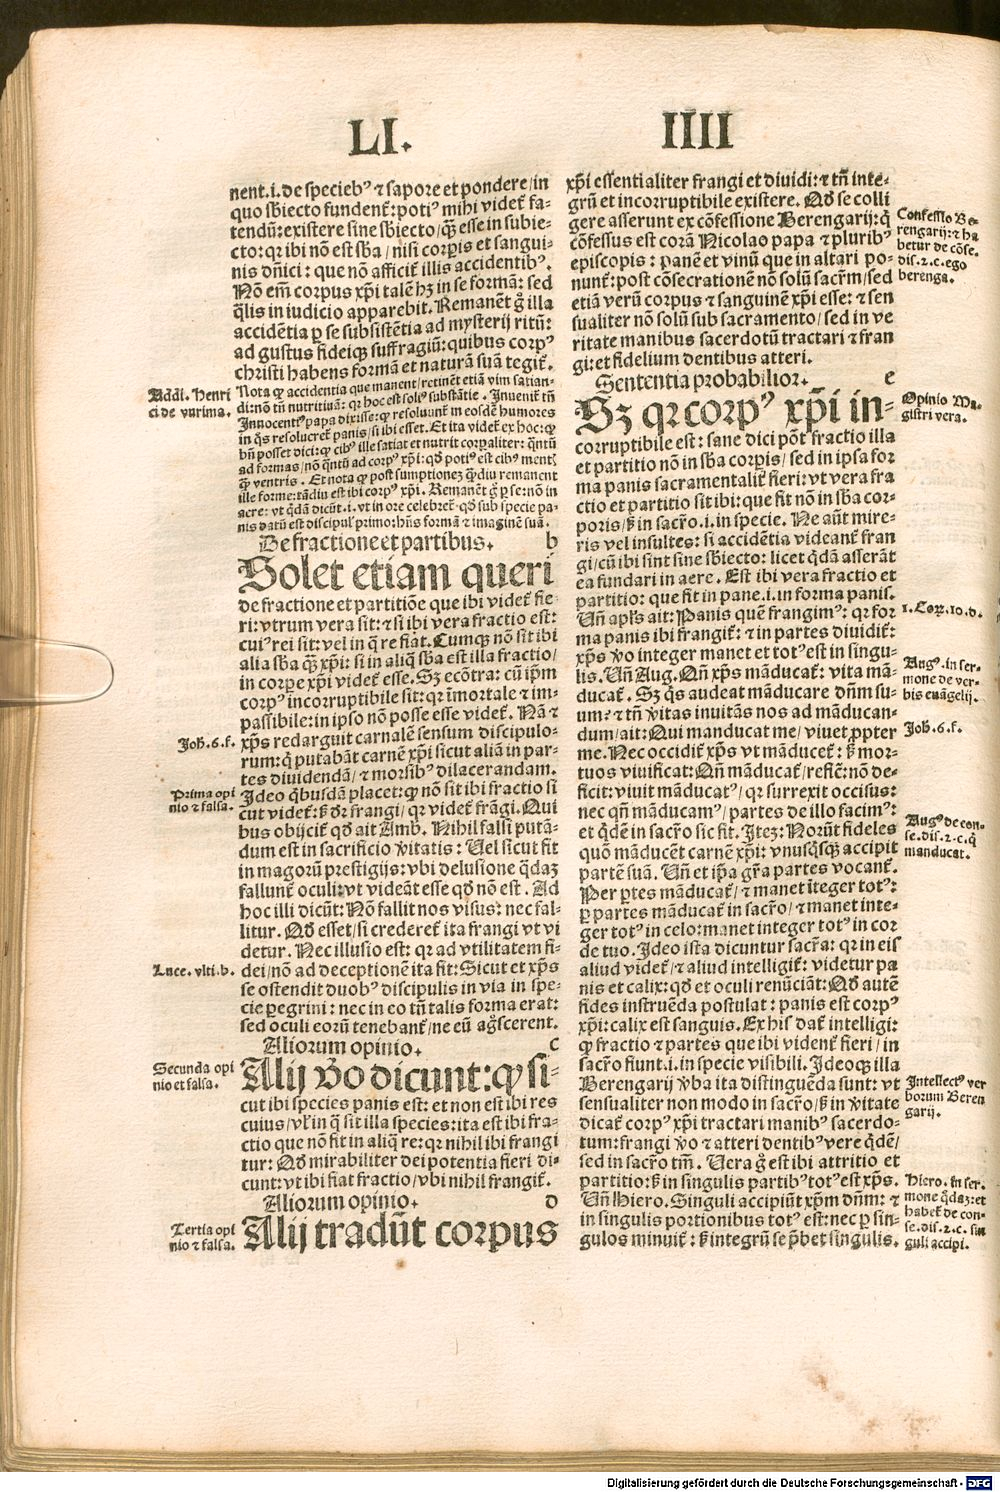 LI. IIII
nent.i. de specieb⁹ ⁊ sapore et pondere/in
quo sbiecto fundent̃: poti⁹ mihi videt̃ fa-
tendũ: existere sine sbiecto/q̃ esse in subie-
cto: qr ibi nõ est sba/ nisi corꝑis et sangui-
nis dñici: que nõ afficit̃ illis accidentib⁹.
Nõ em̃ corpus xp̃i talẽ hꝫ in se formã: sed
q̃lis in iudicio apparebit. Remanẽt g̃ illa
accidẽtia ꝑ se subsistẽtia ad mysterij ritũ:
ad gustus fideiqꝫ suffragiũ: quibus corp⁹
christi habens formã et naturã suã tegit̃.
Addi. Henri
ci de vurima.
Nota ꝙ accidentia que manent/retinẽt etiã vim satian-
di: nõ tñ nutritiuã: qr hoc est soli⁹ substãtie. Inuenit̃ tñ
Innocenti⁹ papa dixisse: ꝙ resoluunt̃ in eosdẽ humores
in q̃s resolueret̃ panis/si ibi esset. Et ita videt̃ ex hoc: ꝙ
bñ posset dici: ꝙ cib⁹ ille satiat et nutrit corꝑaliter: q̃ntũ
ad formas/nõ q̃ntũ ad corp⁹ xp̃i: qd̃ poti⁹ est cib⁹ ment̃
q̃ ventris. Et nota ꝙ post sumptionez q̃diu remanent
ille forme: tãdiu est ibi corp⁹ xp̃i. Remanẽt g̃ ꝑ se: nõ in
aere: vt q̃dã dicũt.i. vt in ore celebret̃: qd̃ sub specie pa-
nis datũ est discipul̃ primo: hñs formã ⁊ imaginẽ suã.
De fractione et partibus. b
Solet etiam queri
de fractione et partitiõe que ibi videt̃ fie-
ri: vtrum vera sit: ⁊ si ibi vera fractio est:
cui⁹ rei sit: vel in q̃ re fiat. Cumqꝫ nõ sit ibi
alia sba q̃ꝫ xp̃i: si in aliq̃ sba est illa fractio/
in corꝑe xp̃i videt̃ esse. Sꝫ ecõtra: cũ ip̃m
corp⁹ incorruptibile sit: qr ĩmortale ⁊ im-
passibile: in ipso nõ posse esse videt̃. Nã ⁊
Joh̃.6.f.
xp̃s redarguit carnalẽ sensum discipulo-
rum: q̃ putabãt carnẽ xp̃i sicut aliã in par-
tes diuidendã/⁊ morsib⁹ dilacerandam.
Prima opi
nio ⁊ falsa.
Ideo q̃busdã placet: ꝙ nõ sit ibi fractio si
cut videt̃: ß dr̃ frangi/qr videt̃ frãgi. Qui
bus obijcit̃ qd̃ ait Amb. Nihil falsi putã-
dum est in sacrificio ṽitatis: Vel sicut fit
in magorũ prestigijs: vbi delusione q̃daꝫ
fallunt̃ oculi: vt videãt esse qd̃ nõ est. Ad
hoc illi dicũt: Nõ fallit nos visus: nec fal-
litur. Qd̃ esset/si crederet̃ ita frangi vt vi
detur. Nec illusio est: qr ad vtilitatem fi-
Luce. vlti. b.
dei/nõ ad deceptionẽ ita fit: Sicut et xp̃s
se ostendit duob⁹ discipulis in via in spe-
cie ꝑegrini: nec in eo tñ talis forma erat:
sed oculi eorũ tenebant̃/ne eũ ag̃scerent.
Aliorum opinio. c
Secunda opi
nio et falsa.
Alij ṽo dicunt: ꝙ si-
cut ibi species panis est: et non est ibi res
cuius/vl̃ in q̃ sit illa species: ita est ibi fra-
ctio que nõ fit in aliq̃ re: qr nihil ibi frangi
tur: Qd̃ mirabiliter dei potentia fieri di-
cunt: vt ibi fiat fractio/vbi nihil frangit̃.
Aliorum opinio. d
Tertia opi
nio ⁊ falsa.
Alij tradũt corpus
xp̃i essentialiter frangi et diuidi: ⁊ tñ inte-
grũ et incorruptibile existere. Qd̃ se colli
gere asserunt ex cõfessione Berengarij: q̃
cõfessus est corã Nicolao papa ⁊ plurib⁹
episcopis: panẽ et vinũ que in altari po-
nunt̃: post cõsecrationẽ nõ solũ sacr̃m/sed
etiã verũ corpus ⁊ sanguinẽ xp̃i esse: ⁊ sen
sualiter nõ solũ sub sacramento/sed in ve
ritate manibus sacerdotũ tractari ⁊ fran
gi: et fidelium dentibus atteri.
Confessio Be-
rengarij: ⁊ ha
betur de cõse.
dis.2.c.ego
berenga.
Sententia probabilior. e
Opinio Ma-
gistri vera.
Sꝫ qr corp⁹ xp̃i in-
corruptibile est: sane dici põt fractio illa
et partitio nõ in sba corꝑis/sed in ipsa for
ma panis sacramentalit̃ fieri: vt vera fra
ctio et partitio sit ibi: que fit nõ in sba cor-
poris/ß in sacr̃o.i. in specie. Ne aũt mire-
ris vel insultes: si accidẽtia videant̃ fran
gi/cũ ibi sint sine sbiecto: licet q̃dã asserãt
ea fundari in aere. Est ibi vera fractio et
partitio: que fit in pane.i. in forma panis.
1. Cor̃.10.d.
Vñ apl̃s ait: Panis quẽ frangim⁹: qr for
ma panis ibi frangit̃: ⁊ in partes diuidit̃:
xp̃s ṽo integer manet et tot⁹ est in singu-
Aug⁹.in ser-
mone de ver-
bis euãgelij.
lis. Vñ Aug. Qñ xp̃s mãducat̃: vita mã-
ducat̃. Sꝫ q̃s audeat mãducare dñm su-
um? ⁊ tñ ṽitas inuitãs nos ad mãducan-
Joh̃.6.f.
dum/ait: Qui manducat me/viuet ꝓpter
me. Nec occidit̃ xp̃s vt mãducet̃: ß mor-
tuos viuificat: Qñ mãducat̃/reficit̃: nõ de-
ficit: viuit mãducat⁹/qr surrexit occisus:
nec qñ mãducam⁹/partes de illo facim⁹:
Aug⁹ de con-
se.dis.2.c.q̃
manducat.
et q̃dẽ in sacr̃o sic fit. Itez: Norũt fideles
quõ mãducẽt carnẽ xp̃i: vnusq̃sqꝫ accipit
partẽ suã. Vñ et ip̃a gr̃a partes vocant̃.
Per ꝑtes mãducat̃/⁊ manet ĩteger tot⁹:
ꝑ partes mãducat̃ in sacr̃o/⁊ manet inte-
ger tot⁹ in celo: manet integer tot⁹ in cor
de tuo. Ideo ista dicuntur sacr̃a: qr in eis
aliud videt̃/⁊ aliud intelligit̃: videtur pa
nis et calix: qd̃ et oculi renũciãt: Qd̃ autẽ
fides instruẽda postulat: panis est corp⁹
xp̃i: calix est sanguis. Ex his dat̃ intelligi:
ꝙ fractio ⁊ partes que ibi vident̃ fieri/in
sacr̃o fiunt.i. in specie visibili. Ideoqꝫ illa
Intellect⁹ ver
borum Beren
garij.
Berengarij ṽba ita distinguẽda sunt: vt
sensualiter non modo in sacr̃o/ß in ṽitate
dicat̃ corp⁹ xp̃i tractari manib⁹ sacerdo-
tum: frangi ṽo ⁊ atteri dentib⁹ vere q̃dẽ/
sed in sacr̃o tm̃. Vera g̃ est ibi attritio et
partitio: ß in singulis partib⁹ tot⁹ est xp̃s.
Hiero. in ser.
mone q̃daz: et
habet̃ de con-
se.dis.2.c. sin
guli accipi.
Vñ Hiero. Singuli accipiũt xp̃m dñm: ⁊
in singulis portionibus tot⁹ est: nec ꝑ sin-
gulos minuit̃: ß integrũ se p̃bet singulis.
Digitalisierung gefördert durch die Deutsche Forschungsgemeinschaft - DFG